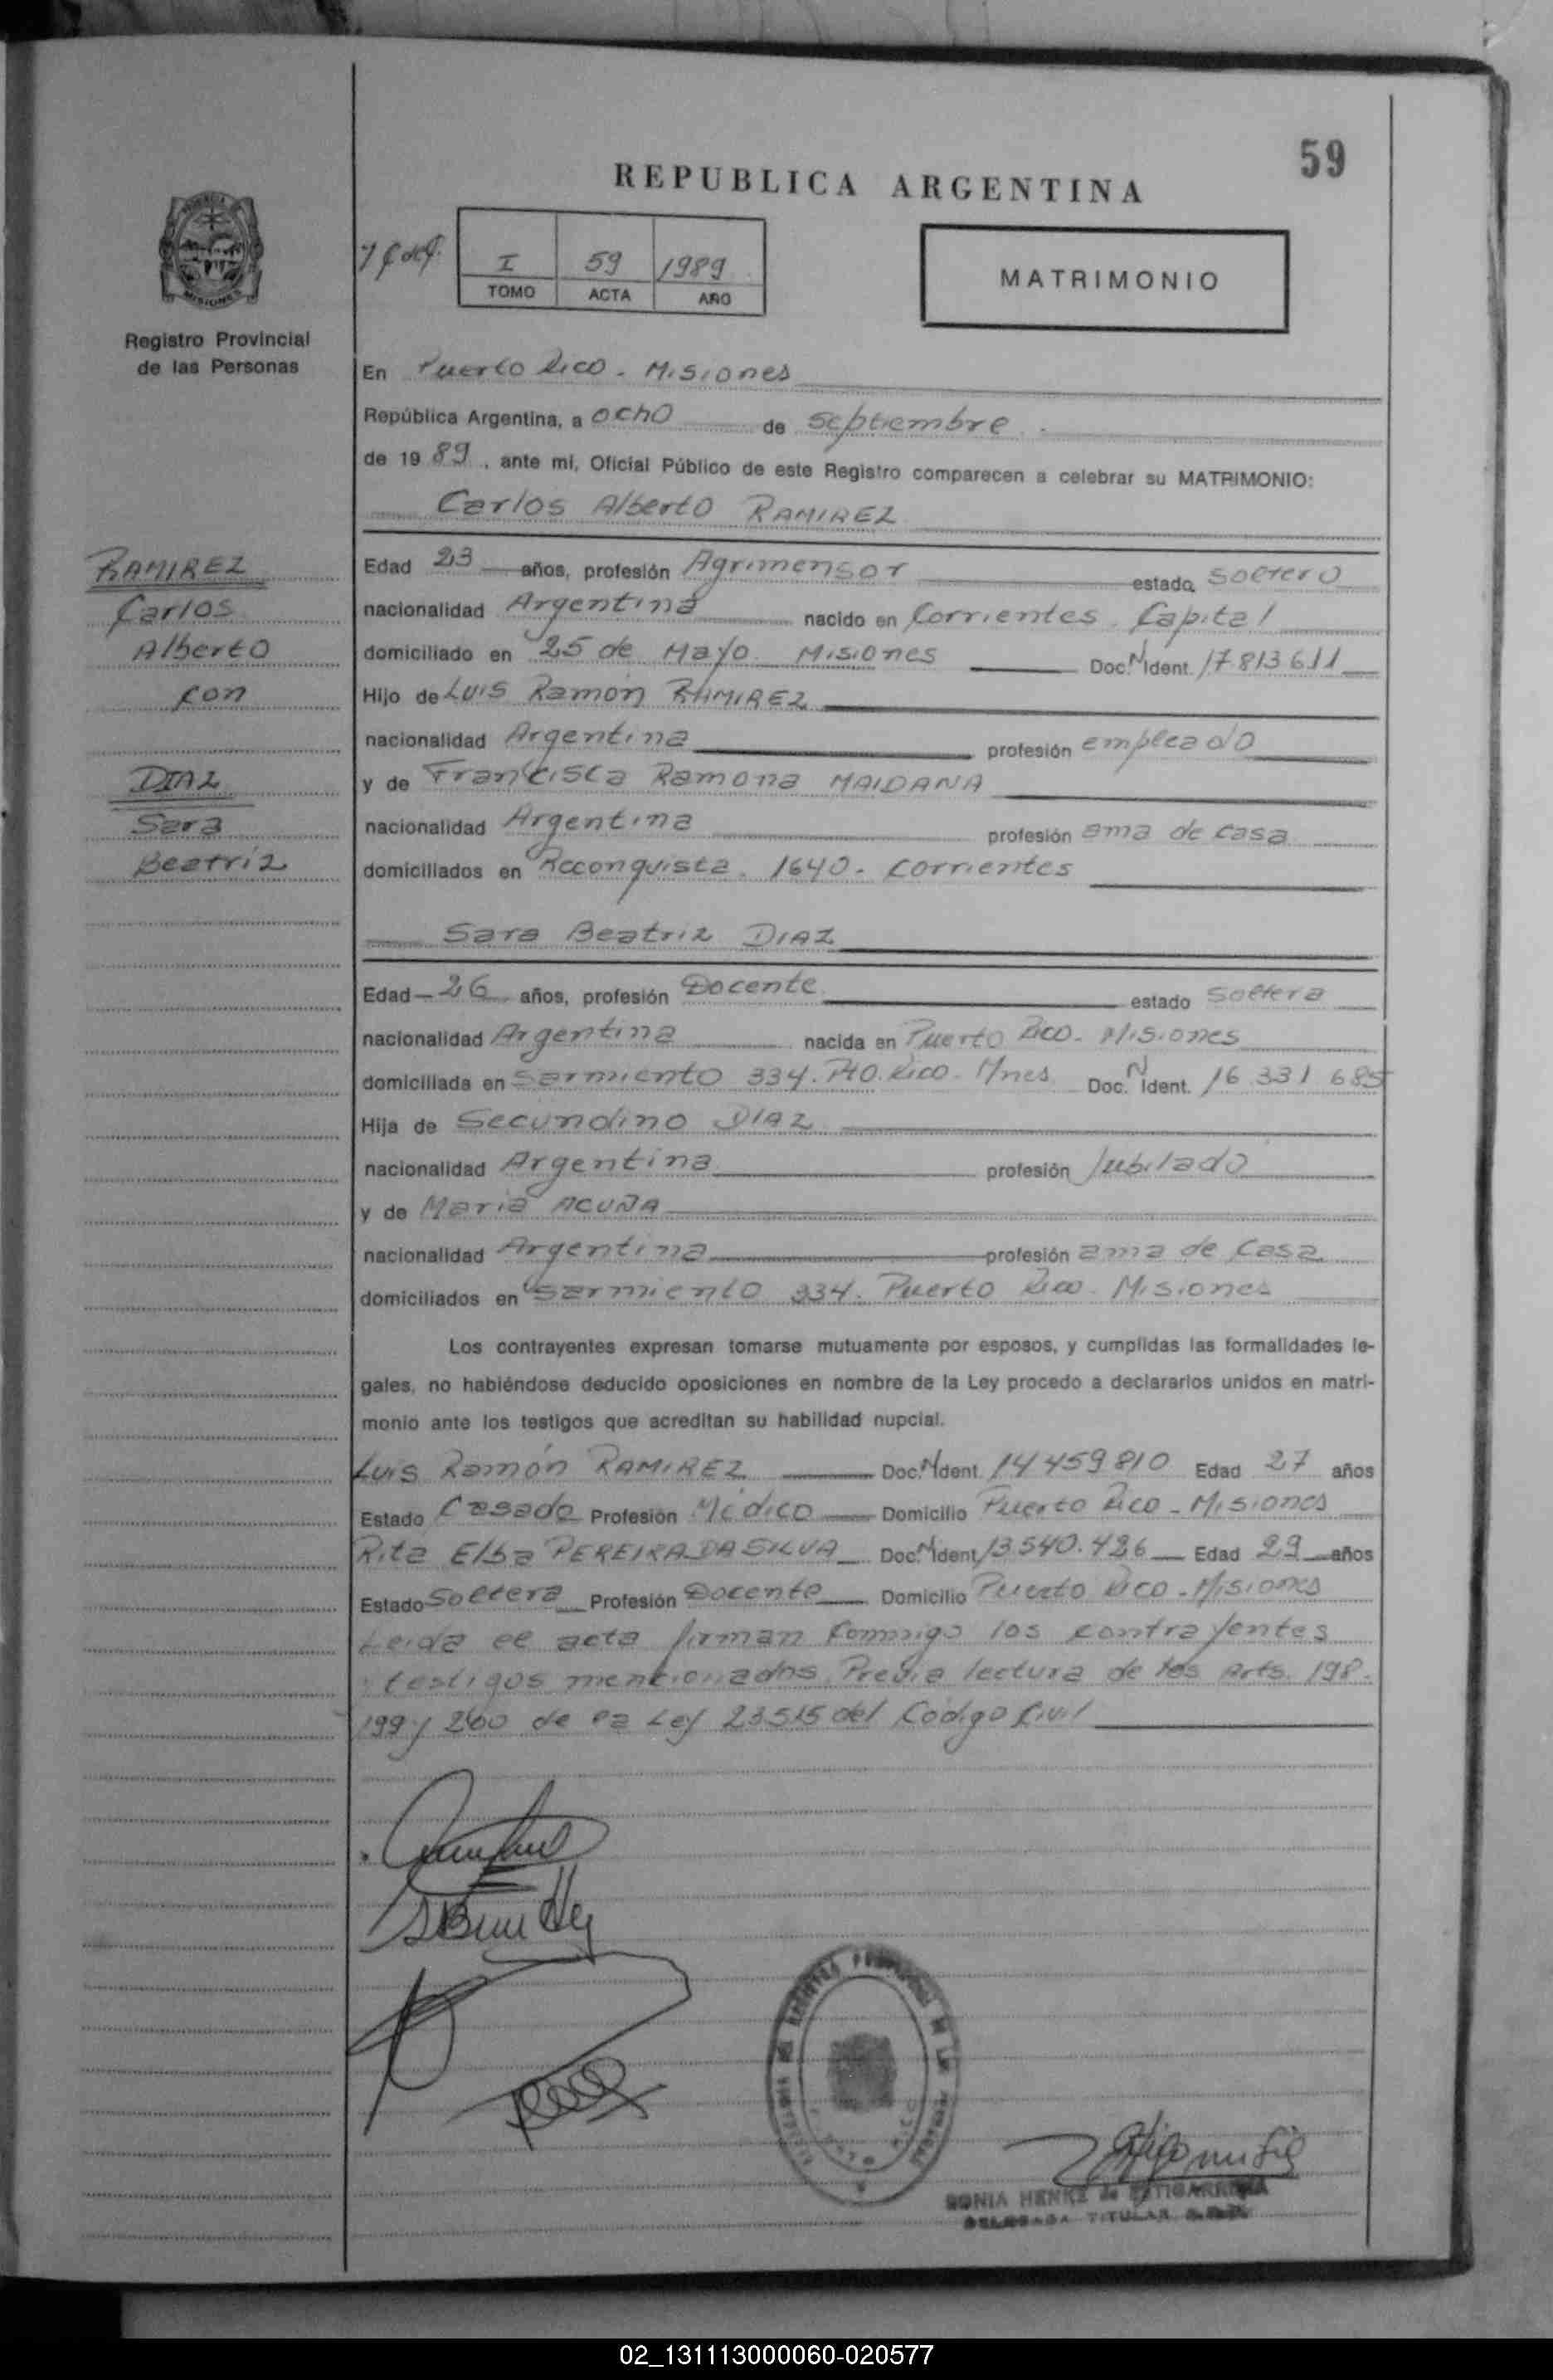 59
REPUBLICA ARGENTINA
I 59 1989
TOMO ACTA AÑO
MATRIMONIO
MISIONES
Registro Provincial
de las Personas
RAMIREZ
Carlos
Alberto
con
DIAZ
Sara
Beatríz
En Puerto Rico - Misiones
República Argentina, a ocho de septiembre.
de 1989, ante mí, Oficial Público de este Registro comparecen a celebrar su MATRIMONIO:
Carlos Alberto RAMIREZ
Edad 23 años, profesión Agrimensor estado soltero
nacionalidad Argentina nacido en Corrientes. Capital
domiciliado en 25 de Mayo. Misiones Doc. N Ident. 17.813.611
Hijo de Luis Ramón RAMIREZ
nacionalidad Argentina profesión empleado
y de Francisca Ramona MAIDANA
nacionalidad Argentina profesión ama de casa
domiciliados en Reconquista. 1640. Corrientes
Sara Beatriz DIAZ
Edad 26 años, profesión Docente estado soltera
nacionalidad Argentina nacida en Puerto Rico - Misiones
domiciliada en Sarmiento 334. Pto. Rico - Mnes Doc. N Ident. 16 331 685
Hija de Secundino DIAZ
nacionalidad Argentina profesión Jubilado
y de María ACUÑA
nacionalidad Argentina profesión ama de casa
domiciliados en Sarmiento 334. Puerto Rico - Misiones
Los contrayentes expresan tomarse mutuamente por esposos, y cumplidas las formalidades le-
gales, no habiéndose deducido oposiciones en nombre de la Ley procedo a declararlos unidos en matri-
monio ante los testigos que acreditan su habilidad nupcial.
Luis Ramón RAMIREZ Doc. N Ident. 14 459 810 Edad 27 años
Estado Casado Profesión Médico Domicilio Puerto Rico - Misiones
Rita Elba PEREIRA DA SILVA Doc. N Ident. 13.540.426 Edad 29 años
Estado Soltera Profesión Docente Domicilio Puerto Rico - Misiones
Leida el acta firman conmigo los contrayentes
testigos mencionados. Previa lectura de los Arts. 198.
199 y 200 de la Ley 23515 del Código Civil
SONIA HENKE de ESTIGARRIBIA
DELEGADA TITULAR
02_131113000060-020577